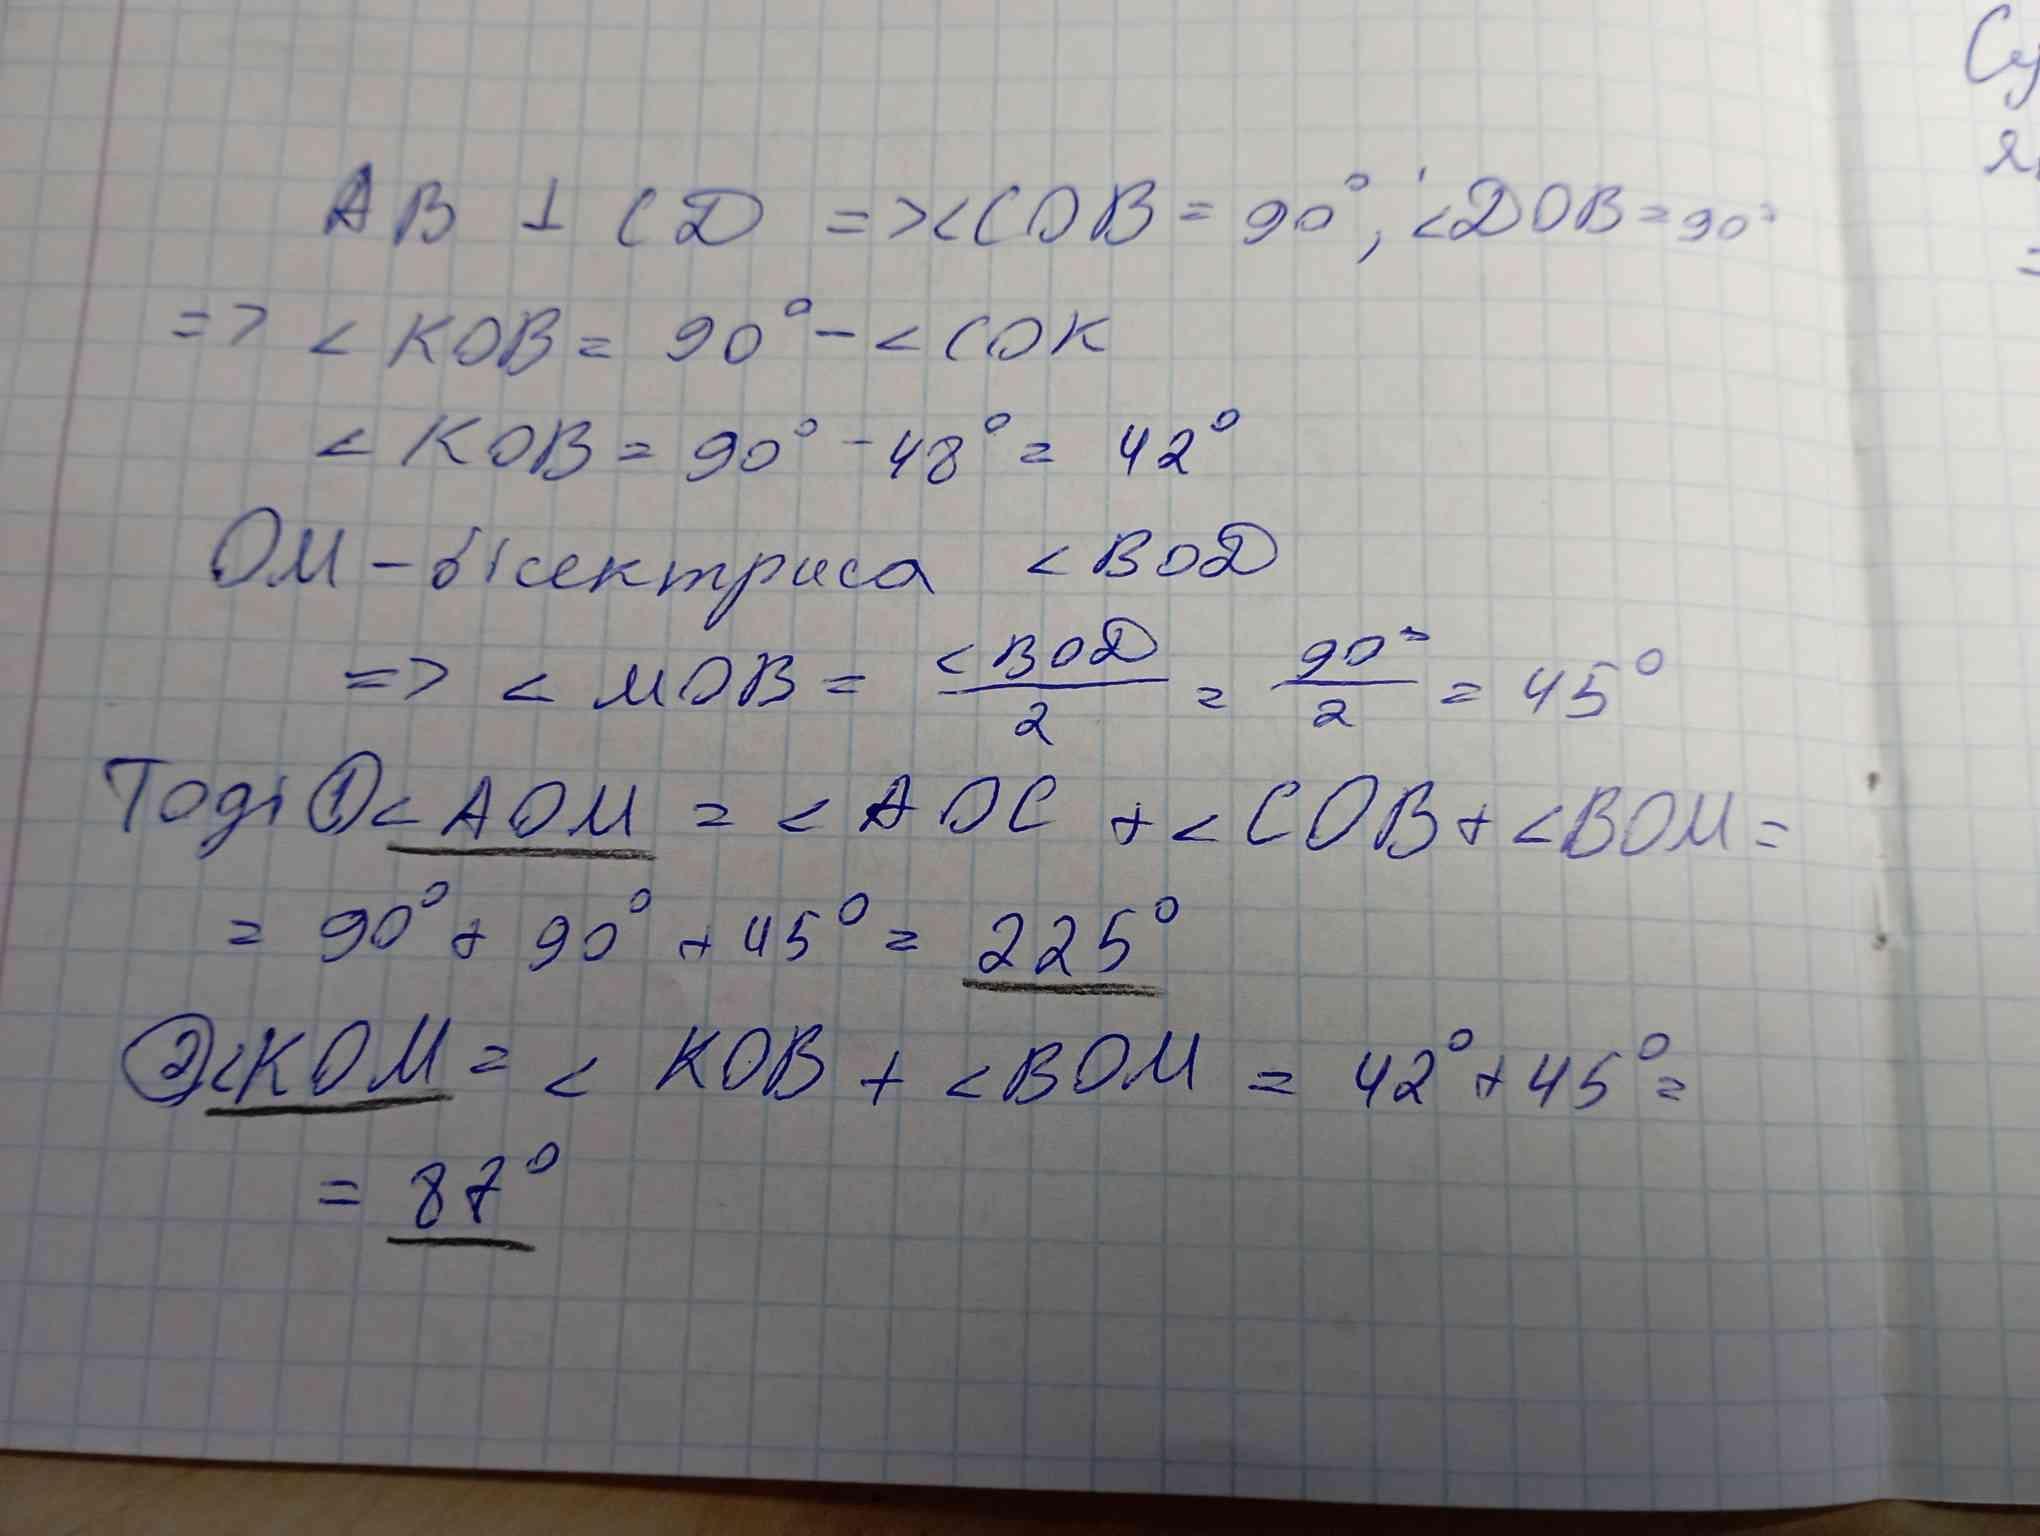 AB ⊥ CD => <COB = 90°, <DOB = 90°
=> < KOB = 90° - < COK
< KOB = 90° - 48° = 42°
OM - бісектриса < BOD
=> < MOB = <BOD/2 = 90°/2 = 45°
Тоді ① < AOM = < AOC + < COB + < BOM =
= 90° + 90° + 45° = 225°
② < KOM = < KOB + < BOM = 42° + 45° =
= 87°